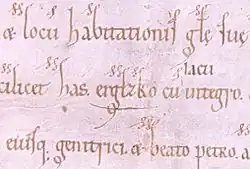 & locū habitationis glę sue
lacu
cilicet has. englzko cū integro
eiusq. genitrici. & beato petro. a